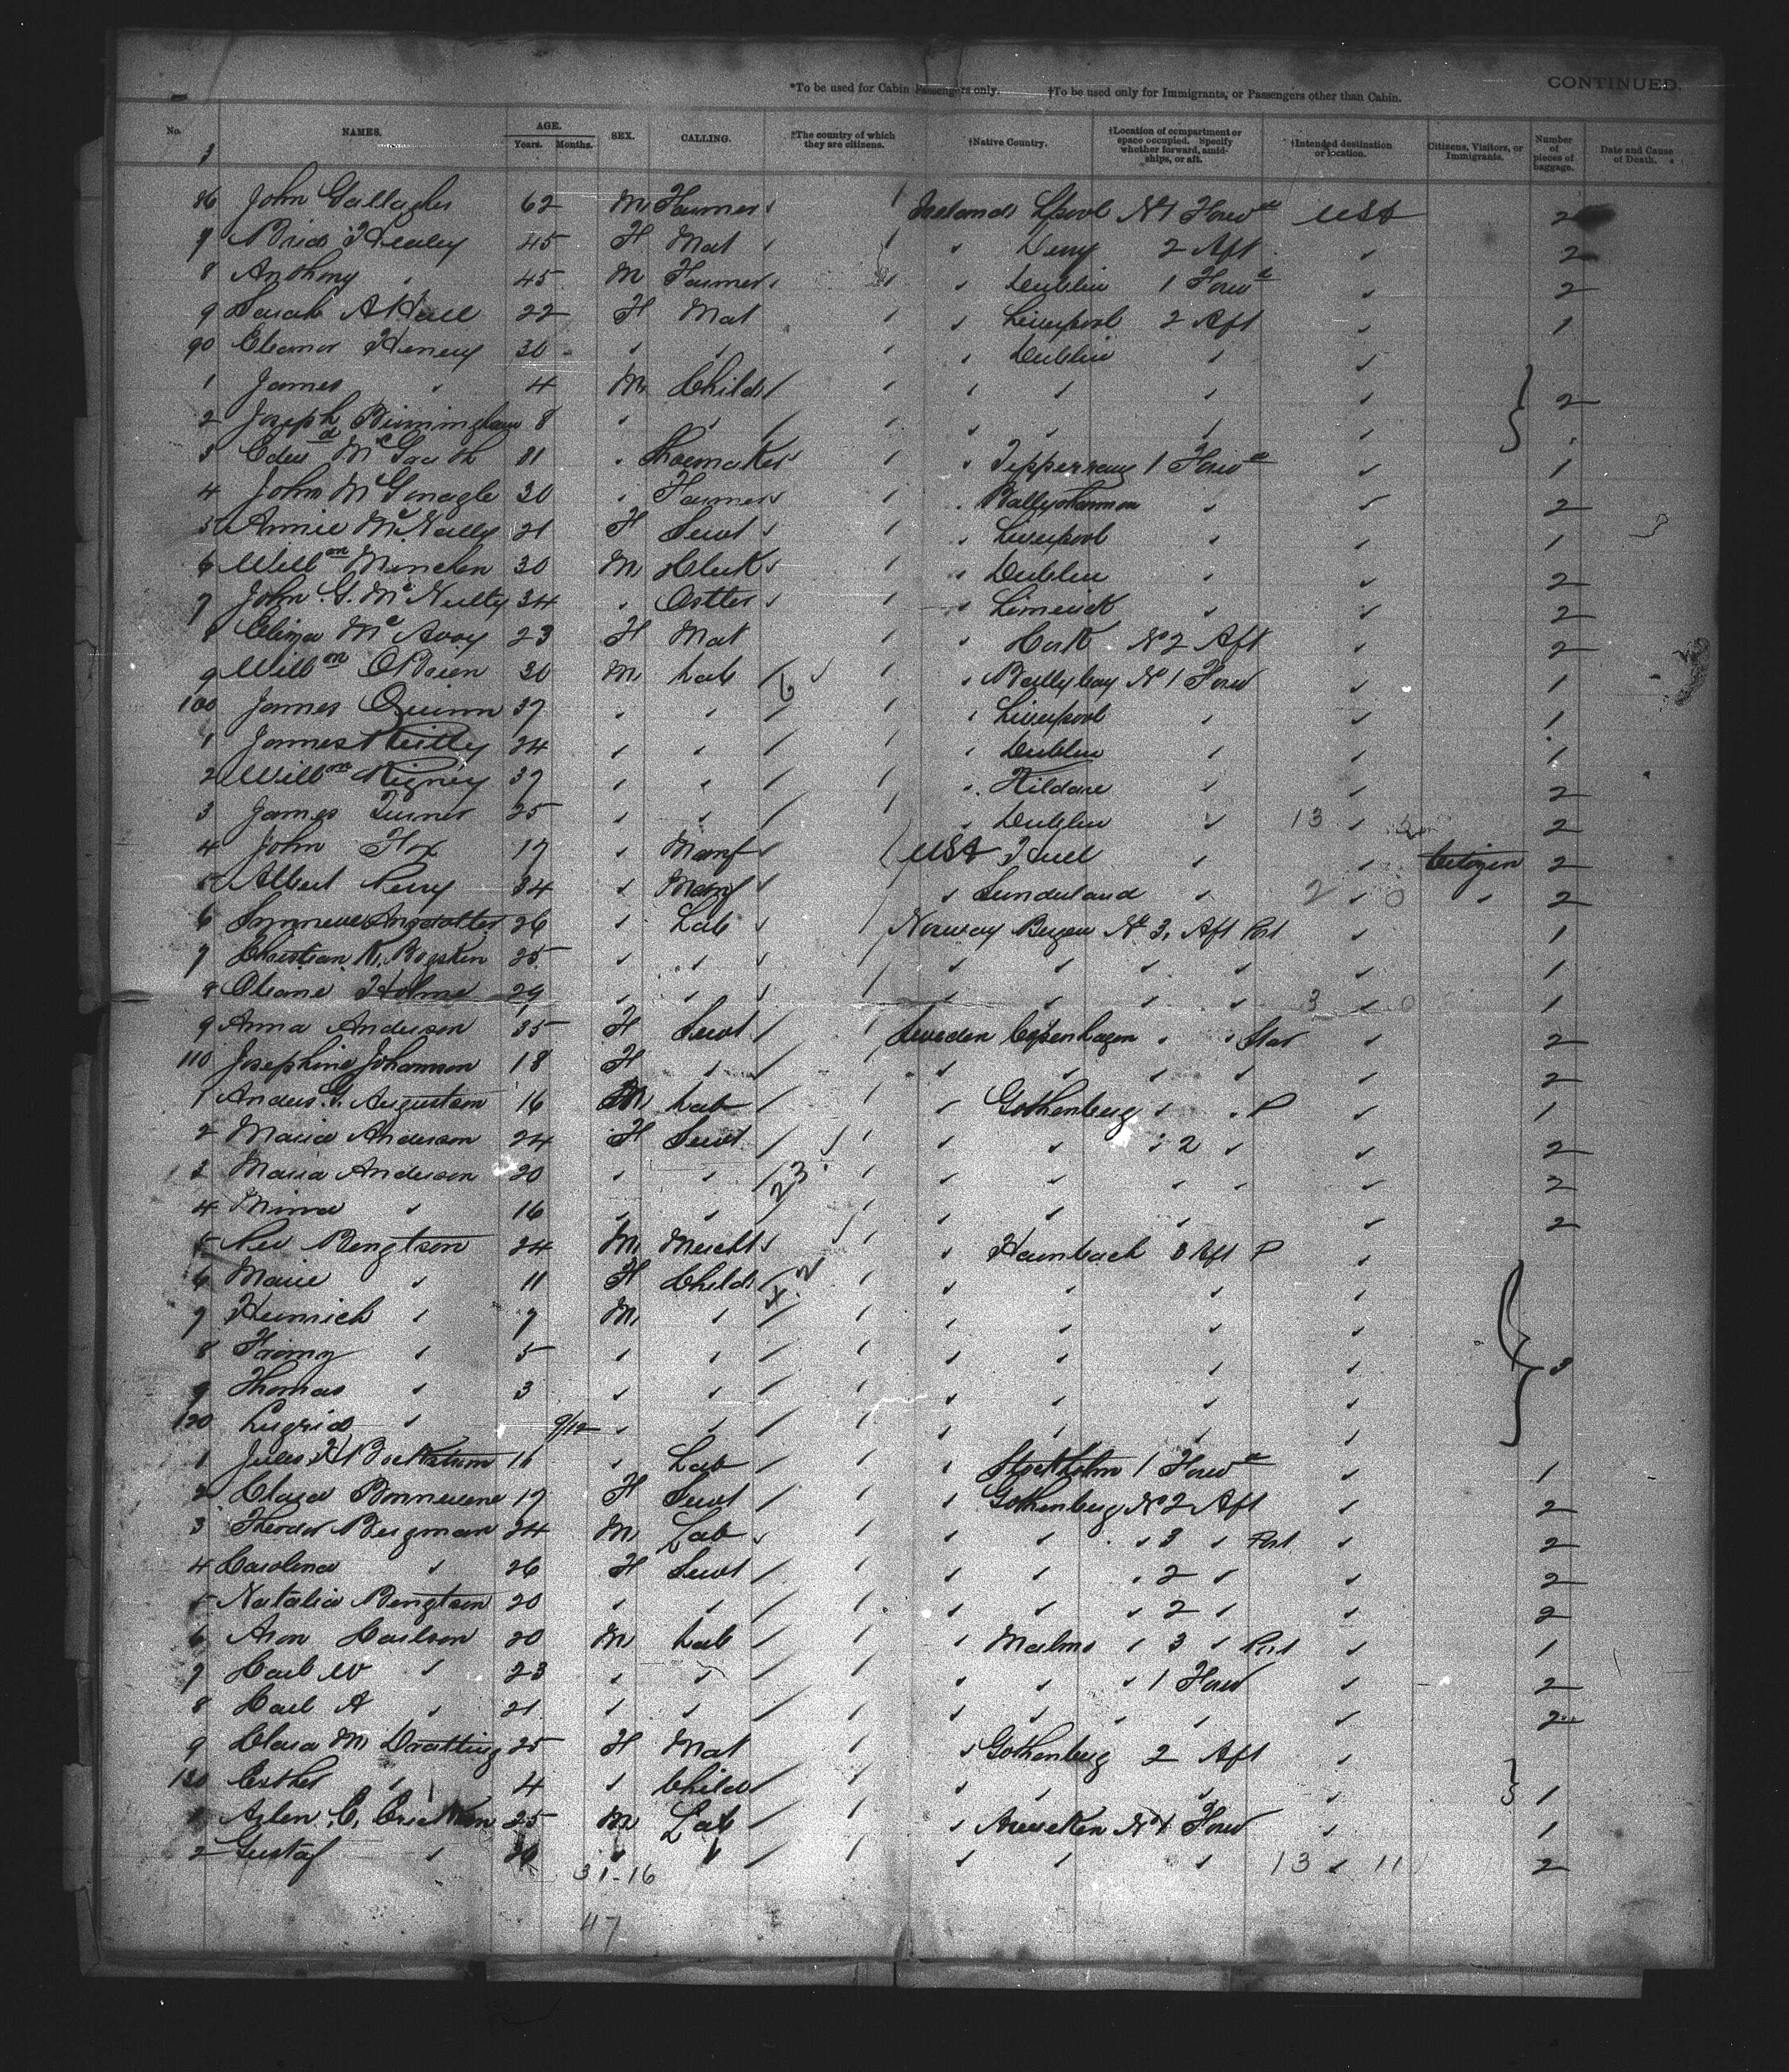 CONTINUED.
*To be used for Cabin Passengers only. †To be used only for Immigrants, or Passengers other than Cabin.
No. NAMES. AGE. Years. Months. SEX. CALLING. *The country of which they are citizens. †Native Country. †Location of compartment or space occupied. Specify whether forward, amidships, or aft. †Intended destination or location. Citizens, Visitors, or Immigrants. Number of pieces of baggage. Date and Cause of Death.
3
86 John Gallagher 62 M Farmer Ireland Lpool No 1 Forwd USA 2
7 Brid Healey 45 F Mat " Derry 2 Aft " 2
8 Anthony " 45 M Farmer " Dublin 1 Forwd " 2
9 Sarah A Hall 22 F Mat " Liverpool 2 Aft " 1
90 Eleanor Henery 30 " " " Dublin " "
1 James " 4 M Child " " " " 2
2 Joseph Birmingham 8 " " " " " "
3 Edwd McGrath 21 " Shoemaker " Tipperrary 1 Forwd " 1
4 John McGonagle 30 " Farmer " Ballyshannon " " 2
5 Annie McNally 21 F Servt " Liverpool " " 1
6 Willm Minchen 30 M Clerk " Dublin " " 2
7 John G. McNulty 34 " Ostler " Limerick " " 2
8 Eliza McAvoy 23 F Mat " Cork No 2 Aft " 2
9 Willm OBrien 30 M Lab 6 " Ballybay No 1 Forw " 1
100 James Quinn 37 " " " Liverpool " " 1
1 James Reilly 24 " " " Dublin " " 1
2 Willm Rigney 37 " " " Kildare " " 2
3 James Turner 25 " " " Dublin " 13 " 2
4 John Fox 17 " Manf USA Hull " " Citizen 2
5 Albert Perry 34 " Manf " Sunderland " 2 " 0 " 2
6 26 " Lab Norway Bergen No 3. Aft Port " 1
7 Christian K. 25 " " " " " " " 1
8 Oleane Holme 29 " " " " " " 3 " 0 1
9 Anna Anderson 35 F Servt Sweden Copenhagen " " Star " 2
110 Josephine Johannson 18 F " " " " " " 2
1 Anders. G. Augustson 16 M Lab " Gothenburg " " P " 1
2 Maria Anderson 24 F Servt " " " 2 " " 2
3 Maria Anderson 20 " " 23 " " " " " 2
4 Minna " 16 " " " " " " 2
5 Per Bengtson 24 M Mercht " 3 Aft P "
6 Marie " 11 F Child " " " "
7 Heinrich " 7 M " " " " "
8 " 5 " " " " " " 3
9 Thomas " 3 " " " " " "
120 " 9/12 " " " " " "
1 Jules H 16 " Lab " Stockholm 1 Forwd " 1
2 Clara 17 F Servt " Gothenberg No 2 Aft " 2
3 Theodor Bergman 24 M Lab " " " 3 " Port " 2
4 Carolina " 26 F Servt " " " 2 " " 2
5 Natalia Bengtson 20 " " " " " 2 " " 2
6 Aron Carlson 20 M Lab " Malmo " 3 " Port " 1
7 Carl W " 23 " " " " " 1 Forw " 2
8 Carl A " 21 " " " " " " 2
9 Clara M 25 F Mat " Gothenberg 2 Aft "
130 Esther " 4 " Child " " " " 1
1 E. Erickson 25 M Lab " No 1 Forw " 1
2 Gustaf " 20 " " " " " 13 " 11 2
31-16
47